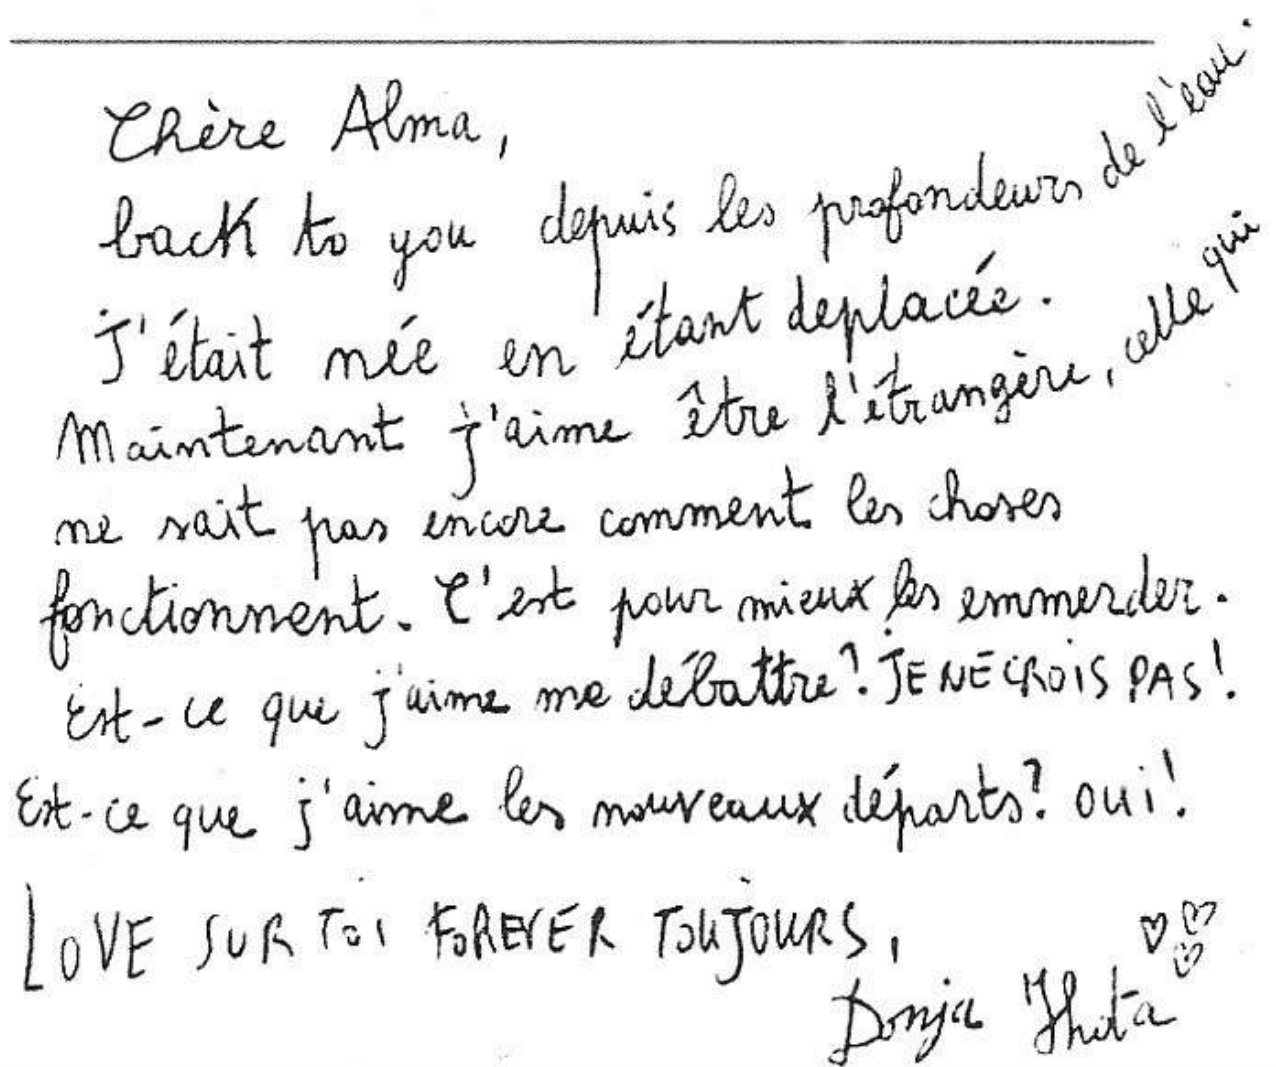 Chère Alma,
back to you depuis les profondeurs de l'eau.
J'était née en étant deplacée.
Maintenant j'aime être l'étrangère, celle qui
ne sait pas encore comment les choses
fonctionnent. C'est pour mieux les emmerder.
Est-ce que j'aime me débattre? JE NE CROIS PAS!
Est-ce que j'aime les nouveaux départs? oui!
LOVE SUR TOI FOREVER TOUJOURS,
Donja